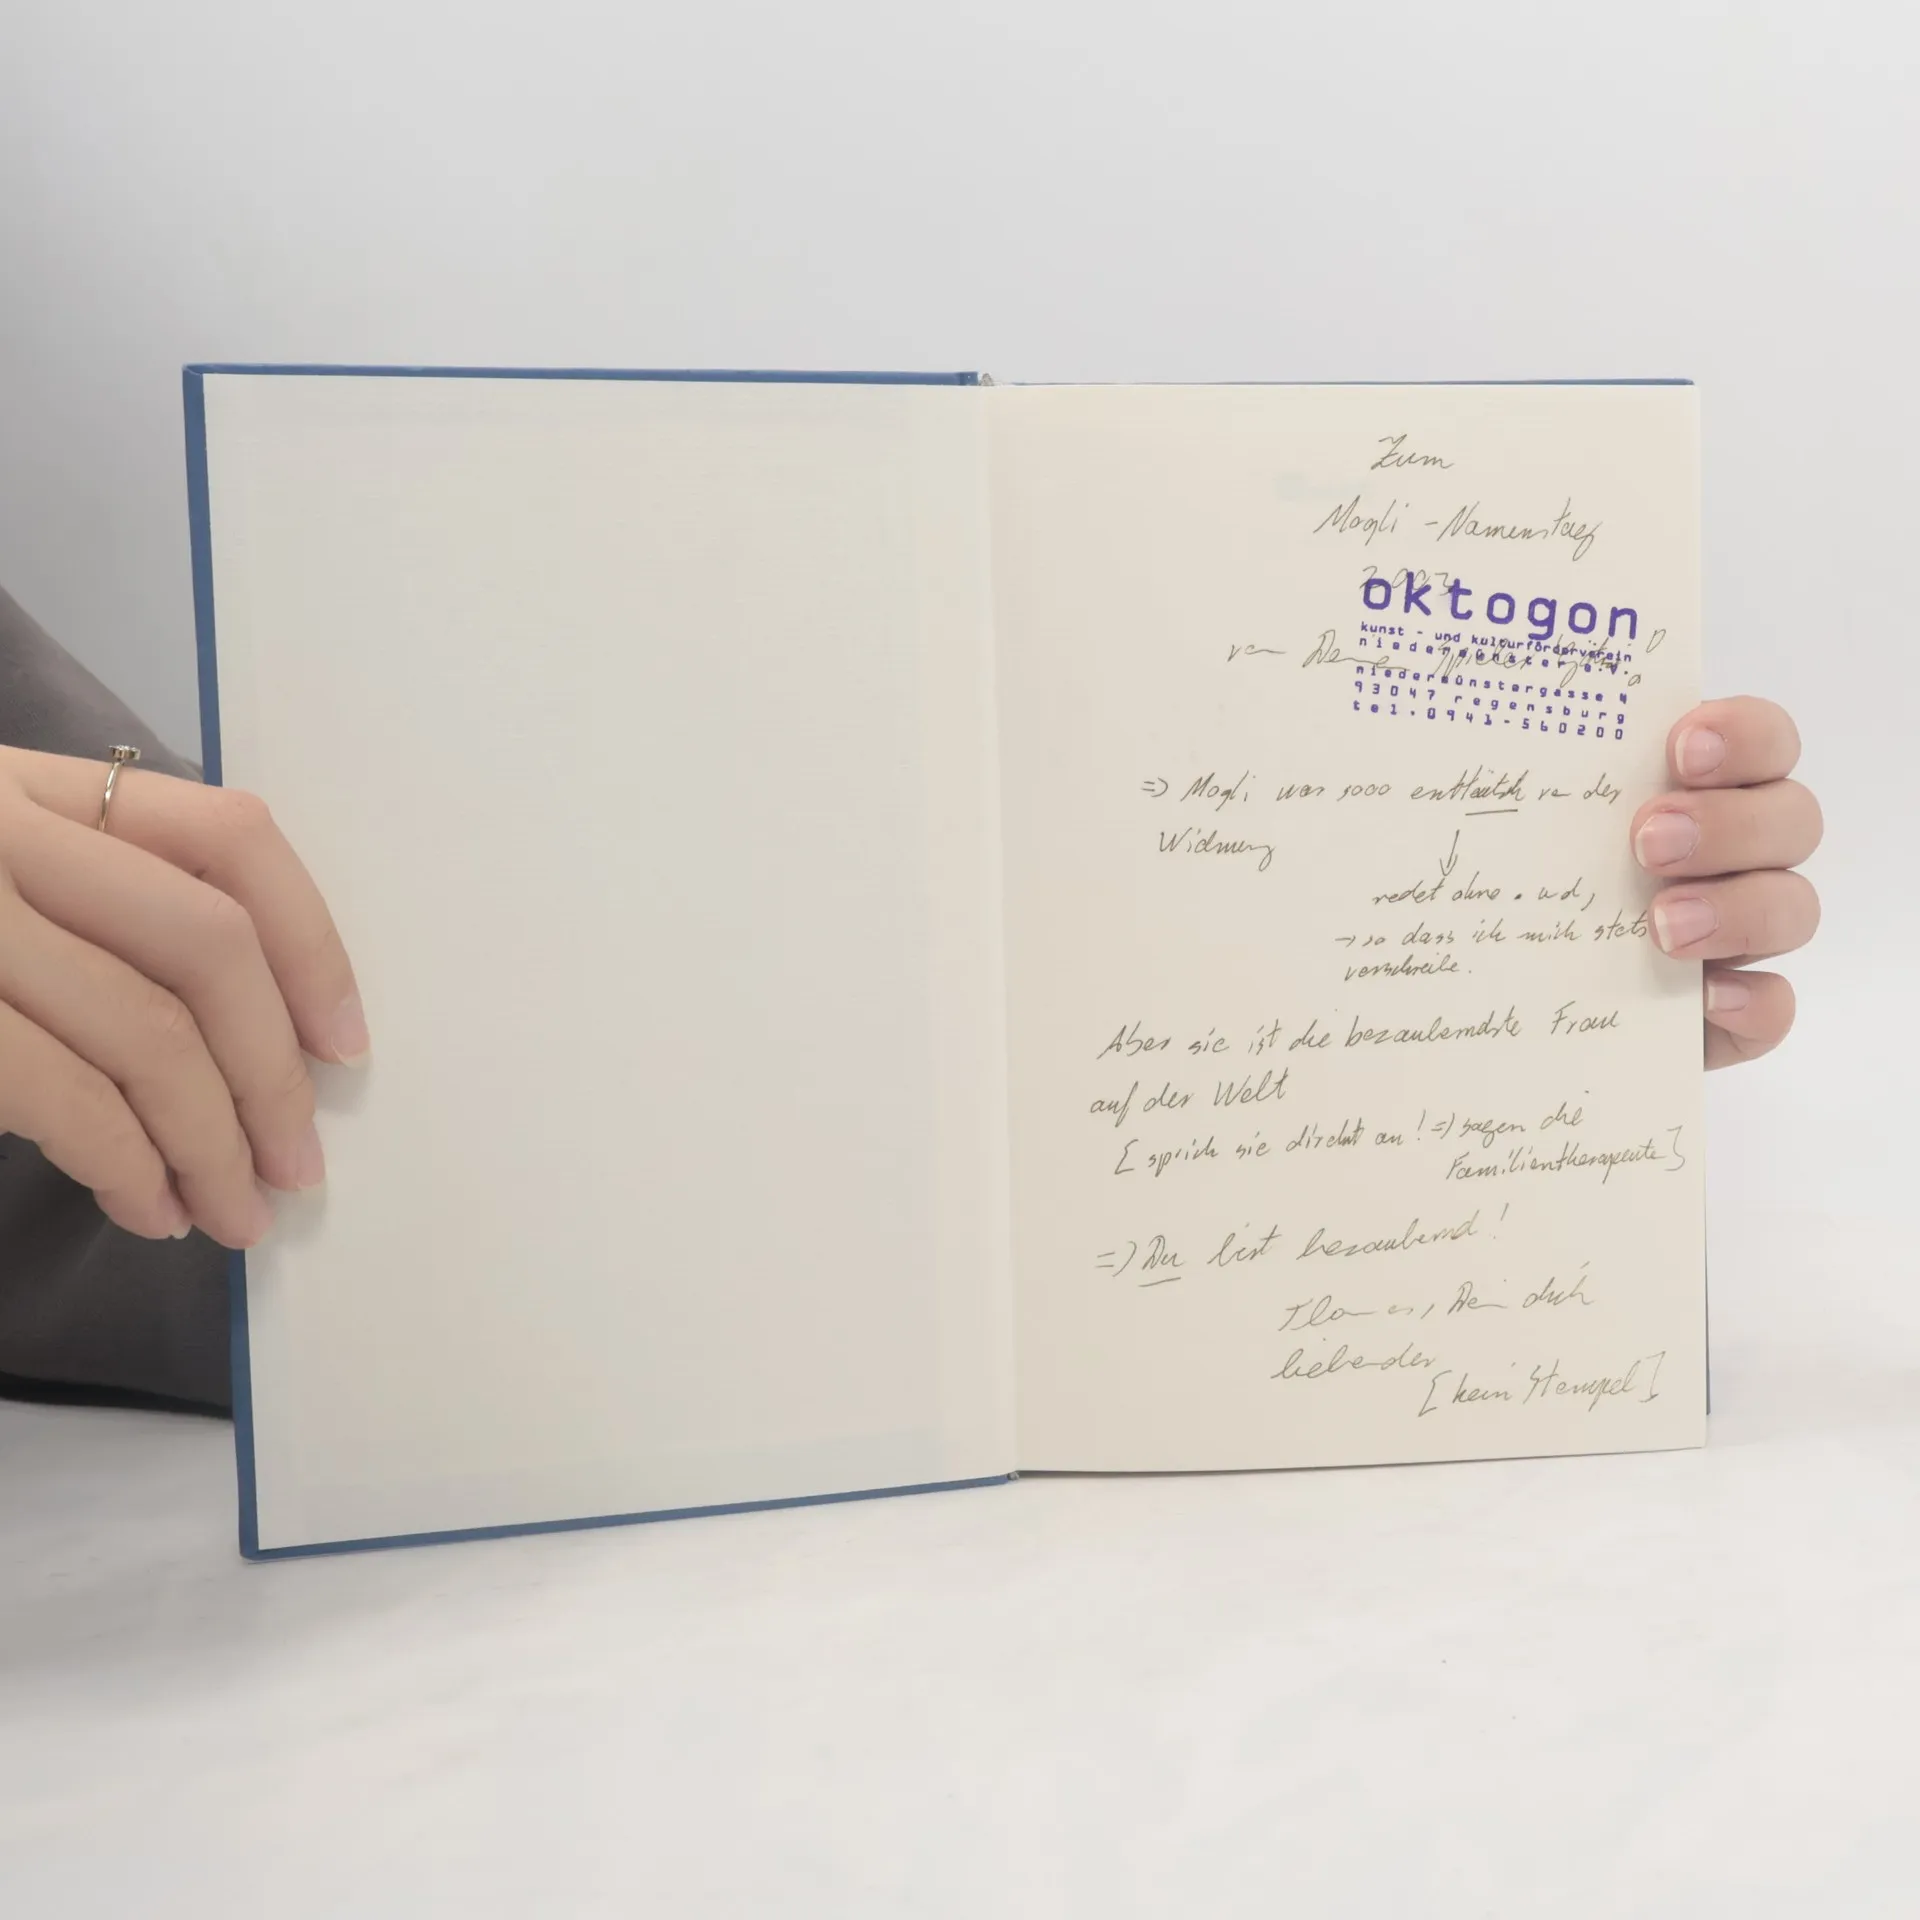 Zum
Mogli - Namenstag
2003
oktogon
kunst - und kulturförderverein
niedermünster e.V.
von Deinem
niedermünstergasse 4
93047 regensburg
tel. 0941-560200
=> Mogli war sooo enttäutsh von der
Widmung
↓
redet ohne . und ,
→ so dass ich mich stets
verschreibe.
Aber sie ist die bezauberndste Frau
auf der Welt
[ sprich sie direkt an! => sagen die
Familientherapeute]
=> Du bist bezaubernd!
Dein dich
liebender
[kein Stempel]